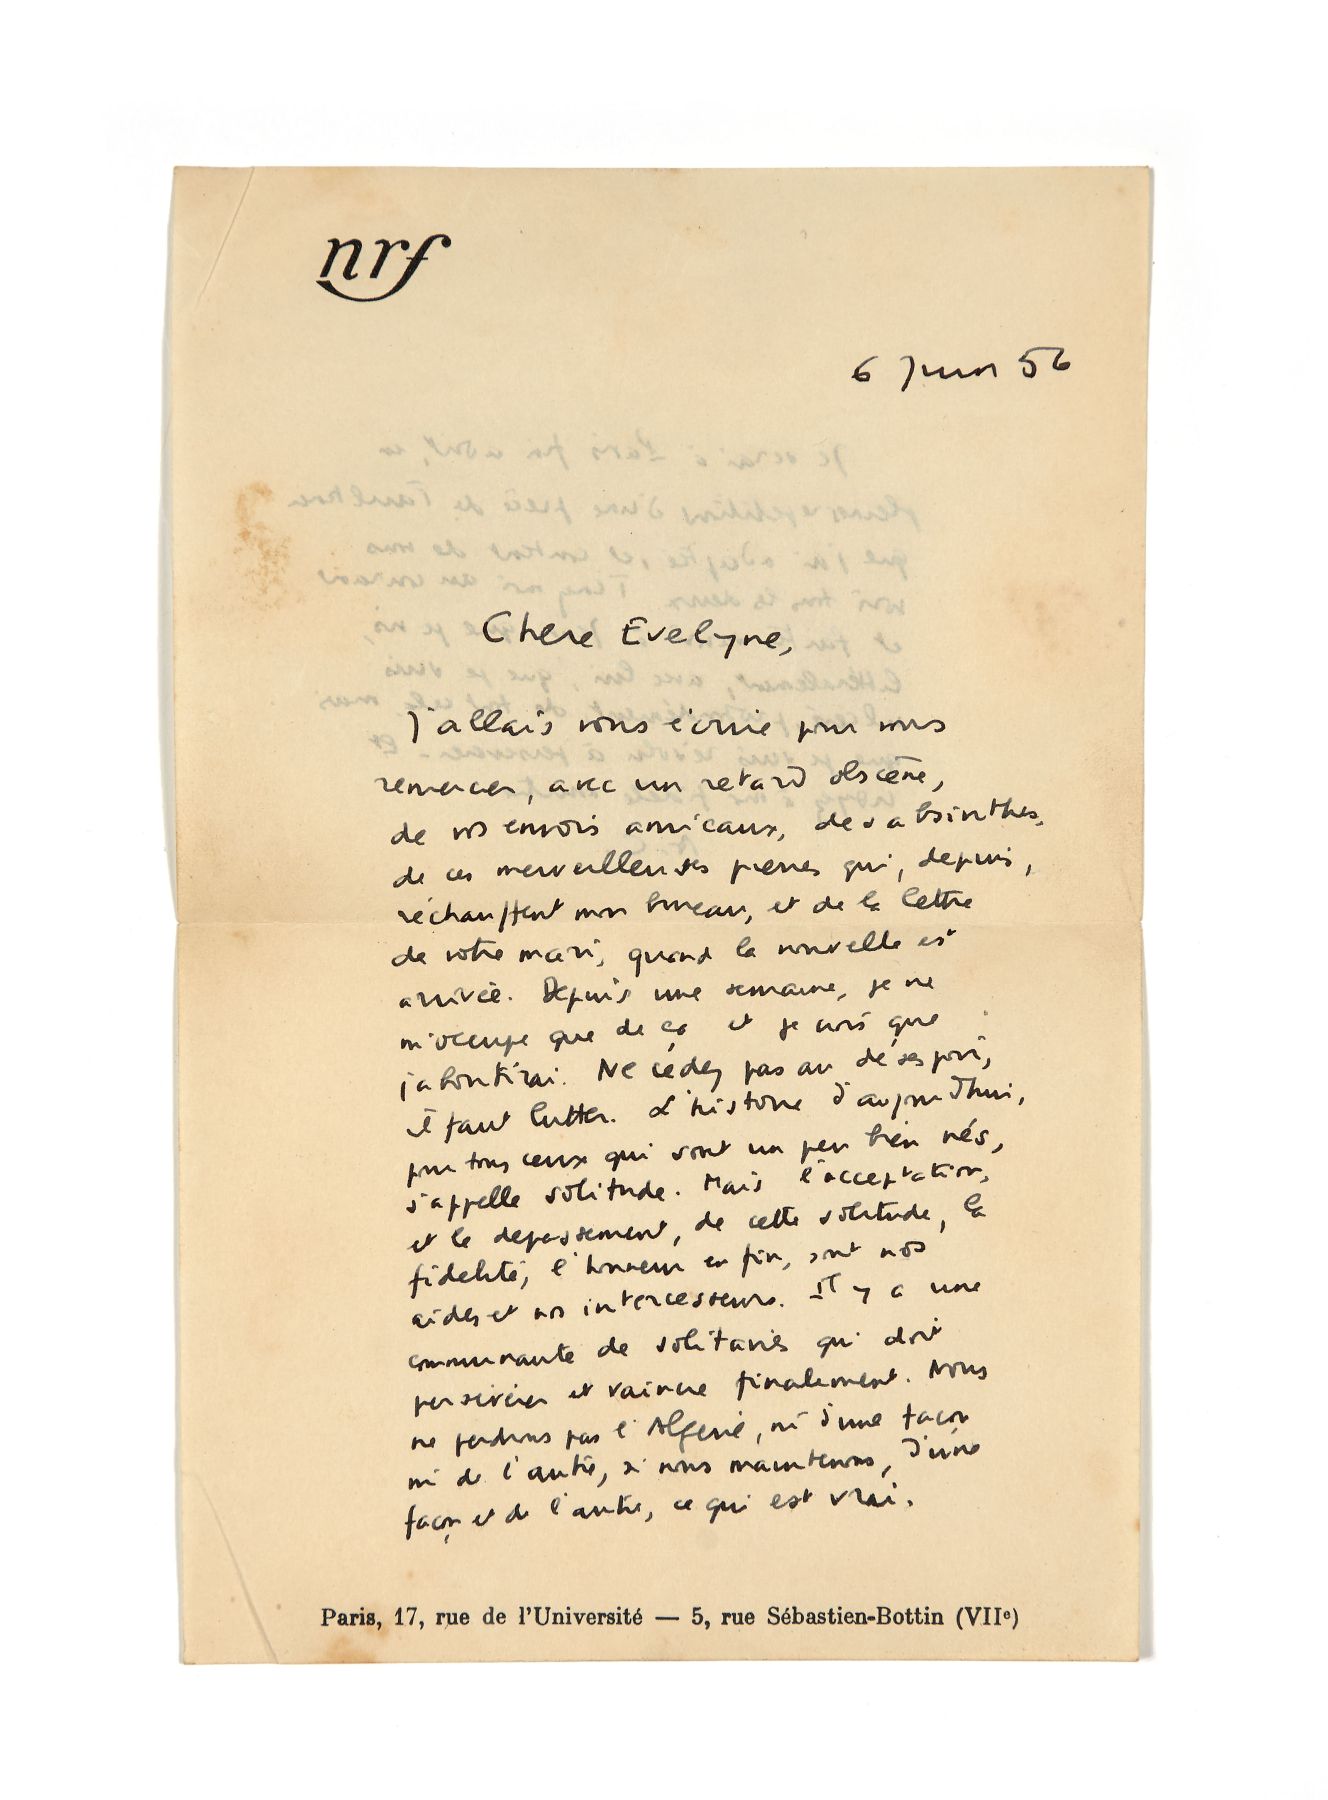 nrf
6 Juin 56
Chère Evelyne,
J'allais vous écrire pour vous
remercier, avec un retard obscène,
de vos envois amicaux, des absinthes,
de ces merveilleuses pierres qui, depuis,
réchauffent mon bureau, et de la lettre
de votre mari, quand la nouvelle est
arrivée. Depuis une semaine, je ne
m'occupe que de ça et je crois que
j'aboutirai. Ne cédez pas au désespoir,
il faut lutter. L'histoire d'aujourd'hui,
pour tous ceux qui sont un peu bien nés,
s'appelle solitude. Mais l'acceptation,
et le dépassement, de cette solitude, la
fidélité, l'honneur enfin, sont nos
aides et nos intercesseurs. Il y a une
communauté de solitaires qui doit
persévérer et vaincre finalement. Nous
ne perdrons pas l'Algérie, ni d'une façon
ni de l'autre, si nous maintenons, d'une
façon et de l'autre, ce qui est vrai.
Paris, 17, rue de l'Université — 5, rue Sébastien-Bottin (VIIe)